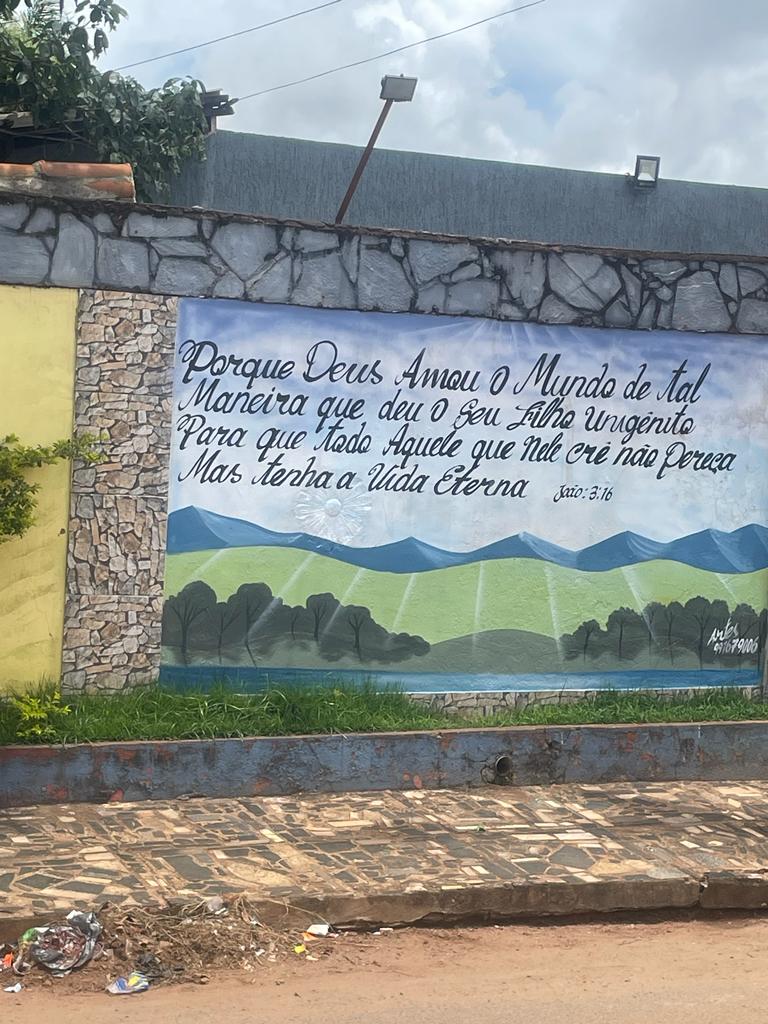 Porque Deus Amou O Mundo de tal
Maneira que deu O Seu Filho Unigênito
Para que todo Aquele que Nele crê não Pereça
Mas tenha a Vida Eterna
João: 3:16
Artes
991679006